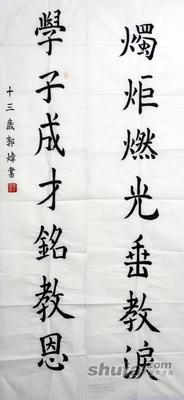 燭炬燃光垂教淚
學子成才銘教恩
十三歲郭煒書